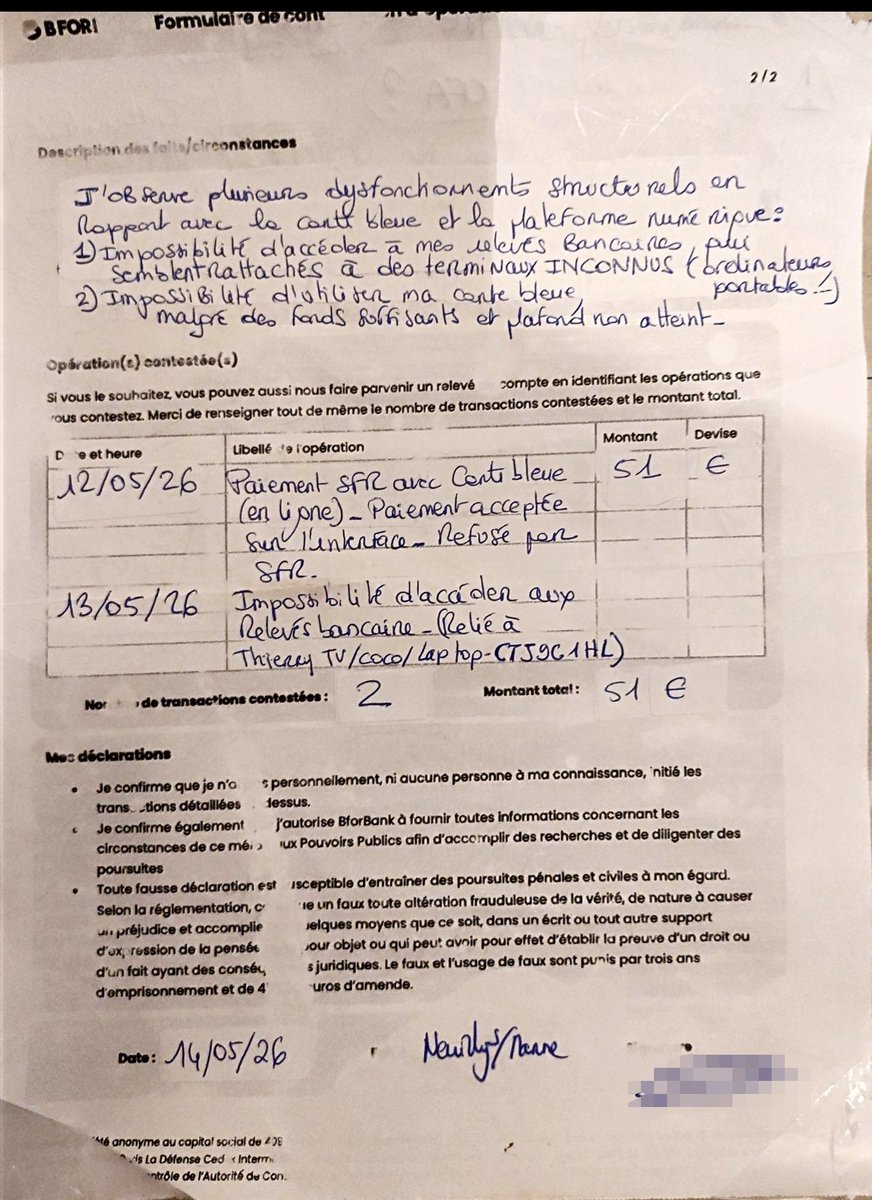 BFOR! Formulaire de cont
2/2
Description des faits/circonstances
J'observe plusieurs dysfonctionnements structurels en
Rapport avec la carte bleue et la plateforme numérique :
1) Impossibilité d'accéder à mes relevés Bancaires, qui
semblent rattachés à des terminaux INCONNUS (ordinateurs,
portables...)
2) Impossibilité d'utiliser ma carte bleue,
malgré des fonds suffisants et plafond non atteint_
Opération(s) contestée(s)
Si vous le souhaitez, vous pouvez aussi nous faire parvenir un relevé compte en identifiant les opérations que
vous contestez. Merci de renseigner tout de même le nombre de transactions contestées et le montant total.
D e et heure Libellé de l'opération Montant Devise
12/05/26 Paiement SFR avec Carte bleue 51 €
(en ligne)_ Paiement acceptée
sur l'interface_ Refusé par
SFR.
13/05/26 Impossibilité d'accéder aux
Relevés bancaire_ (Relié à
Thierry TV/coco/Laptop-CTJ9C1HL)
No de transactions contestées : 2 Montant total : 51 €
Mes déclarations
• Je confirme que je n'a s personnellement, ni aucune personne à ma connaissance, initié les
trans ctions détaillées dessus.
• Je confirme également j'autorise BforBank à fournir toutes informations concernant les
circonstances de ce mé aux Pouvoirs Publics afin d'accomplir des recherches et de diligenter des
poursuites
• Toute fausse déclaration est susceptible d'entraîner des poursuites pénales et civiles à mon égard.
Selon la réglementation, c ue un faux toute altération frauduleuse de la vérité, de nature à causer
un préjudice et accomplie uelques moyens que ce soit, dans un écrit ou tout autre support
d'expression de la pensée pour objet ou qui peut avoir pour effet d'établir la preuve d'un droit ou
d'un fait ayant des conséq s juridiques. Le faux et l'usage de faux sont punis par trois ans
d'emprisonnement et de 4 uros d'amende.
Date : 14/05/26 Neuilly s/Marne
été anonyme au capital social de 4
is La Défense Ced x Interm
ntrôle de l'Autorité de Con